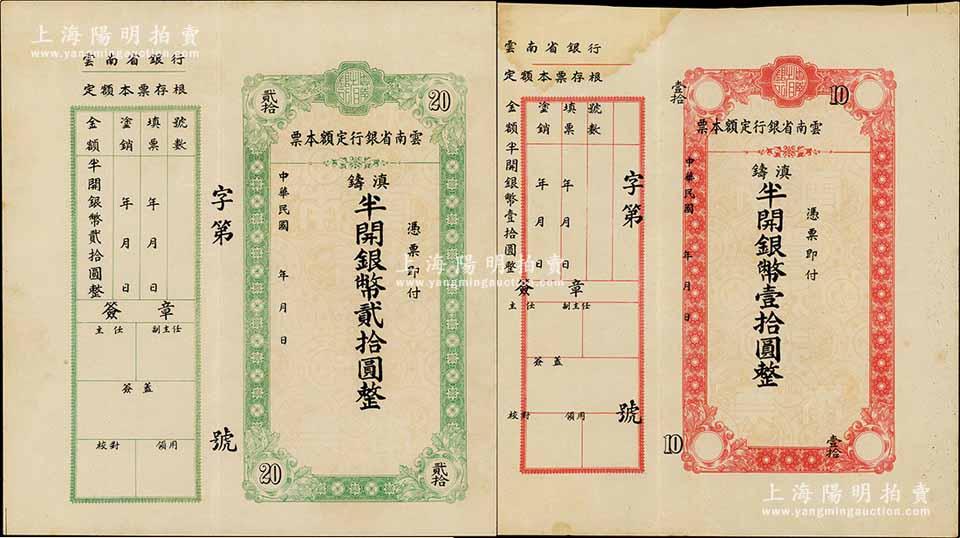 上海陽明拍賣
www.yangmingauction.com
雲南省銀行
定額本票存根
號數
填票 年 月 日
塗銷 年 月 日
金額 半開銀幣貳拾圓整
簽章
主任
副主任
簽蓋
校對
領用
字第 號
貳拾
20
雲南省銀行定額本票
憑票即付
滇鑄半開銀幣貳拾圓整
中華民國 年 月 日
20
貳拾
雲南省銀行
定額本票存根
號數
填票 年 月 日
塗銷 年 月 日
金額 半開銀幣壹拾圓整
簽章
主任
副主任
簽蓋
校對
領用
字第 號
壹拾
10
雲南省銀行定額本票
憑票即付
滇鑄半開銀幣壹拾圓整
中華民國 年 月 日
10
壹拾
上海陽明拍賣
www.yangmingauction.com
上海陽明拍賣
www.yangmingauction.com